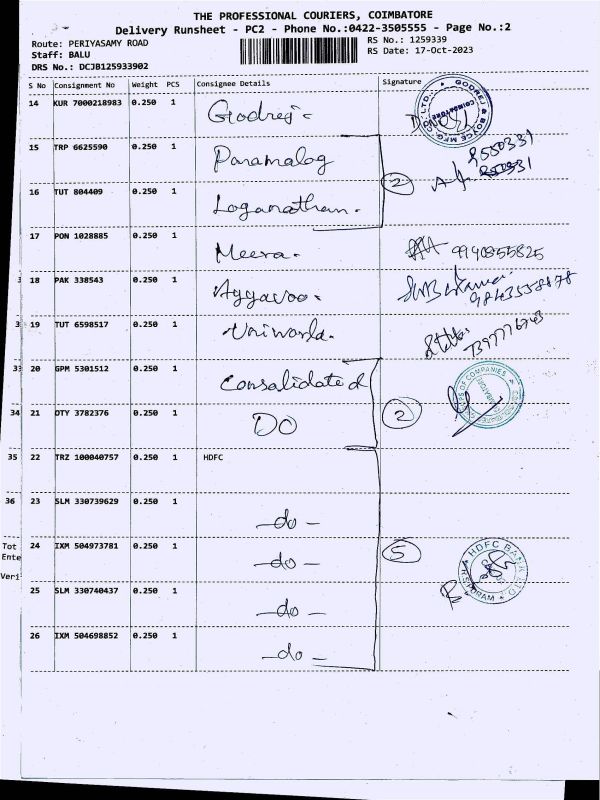 THE PROFESSIONAL COURIERS, COIMBATORE
Delivery Runsheet - PC2 - Phone No.:0422-3505555 - Page No.:2
Route: PERIYASAMY ROAD
RS No.: 1259339
Staff: BALU
RS Date: 17-Oct-2023
DRS No.: DCJB125933902
S No Consignment No Weight PCS Consignee Details Signature
14 KUR 7000218983 0.250 1 Godrej
GODREJ & BOYCE MFG. CO. LTD. COIMBATORE
15 TRP 6625590 0.250 1 Paramalog
8550331
16 TUT 804409 0.250 1 Loganathan. 2
17 PON 1028885 0.250 1 Meera. 9940855825
18 PAK 338543 0.250 1 Aggavoo.
3 19 TUT 6598517 0.250 1 Uniworld.
33 20 GPM 5301512 0.250 1 Consalidated
OF COMPANIES
34 21 OTY 3782376 0.250 1 DO 2
35 22 TRZ 100040757 0.250 1 HDFC
36 23 SLM 330739629 0.250 1 -do-
Tot 24 IXM 504973781 0.250 1 -do- 5
Ente
HDFC BANK LTD.
Veri
25 SLM 330740437 0.250 1 -do-
26 IXM 504698852 0.250 1 -do-